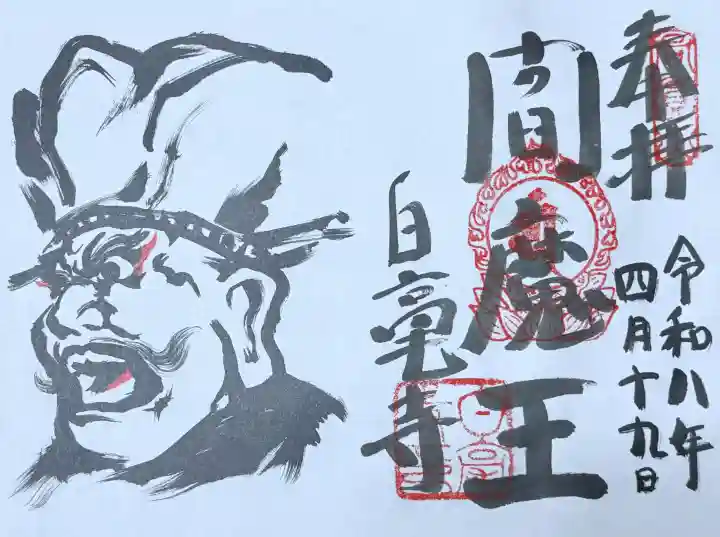 奉拝
令和八年
四月十九日
閻魔王
白毫寺